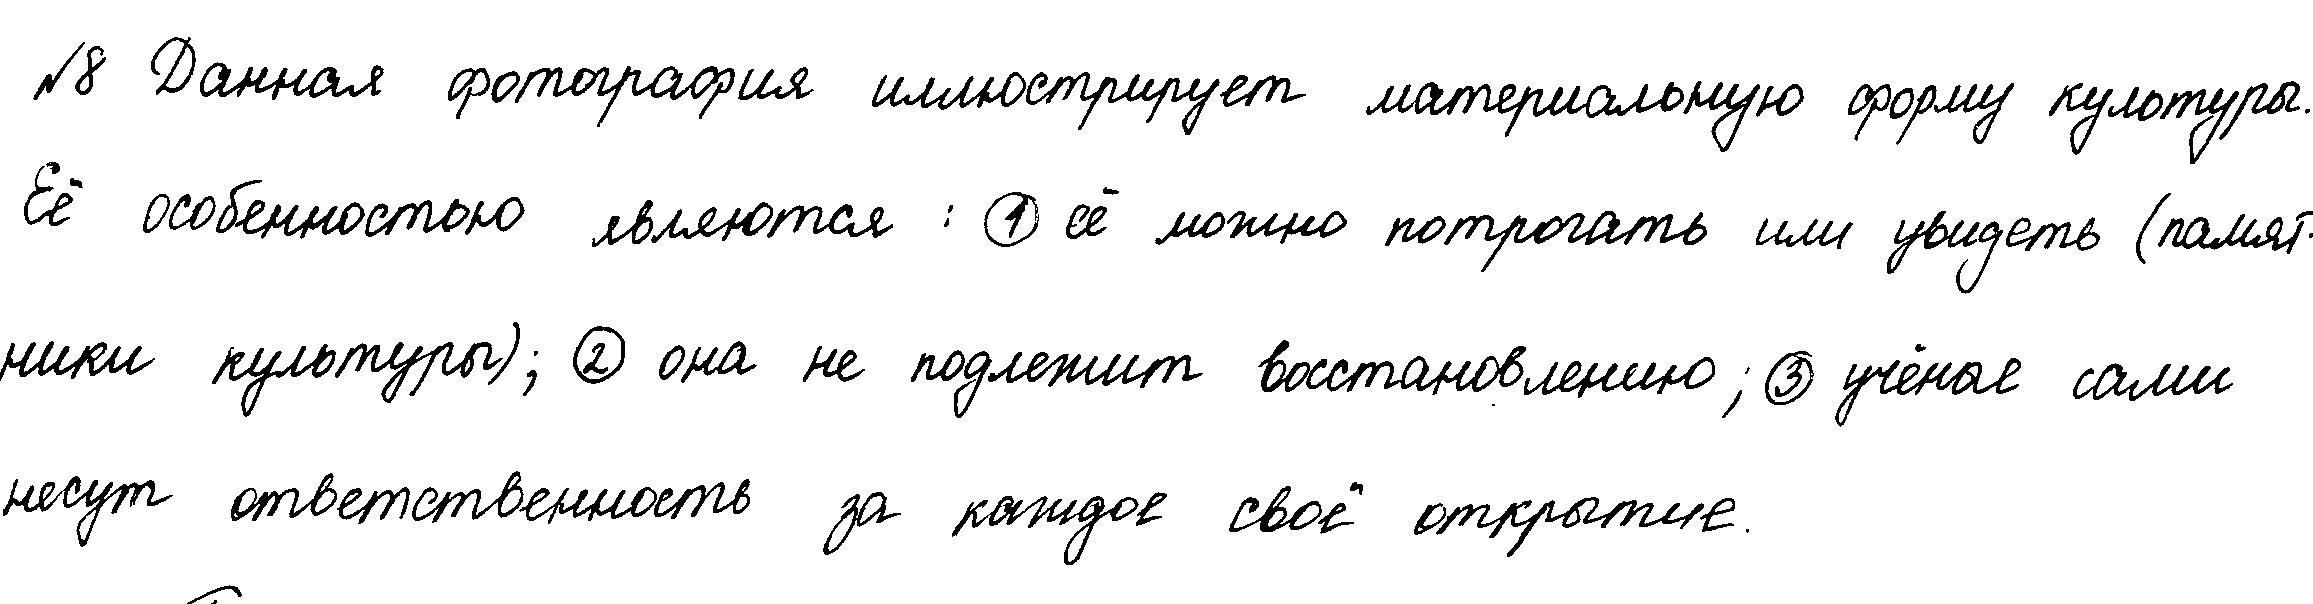 №8 Данная фотография иллюстрирует материальную форму культуры.
Её особенностью являются: ① её можно потрогать или увидеть (памят-
ники культуры); ② она не подлежит восстановлению; ③ учёные сами
несут ответственность за каждое своё открытие.